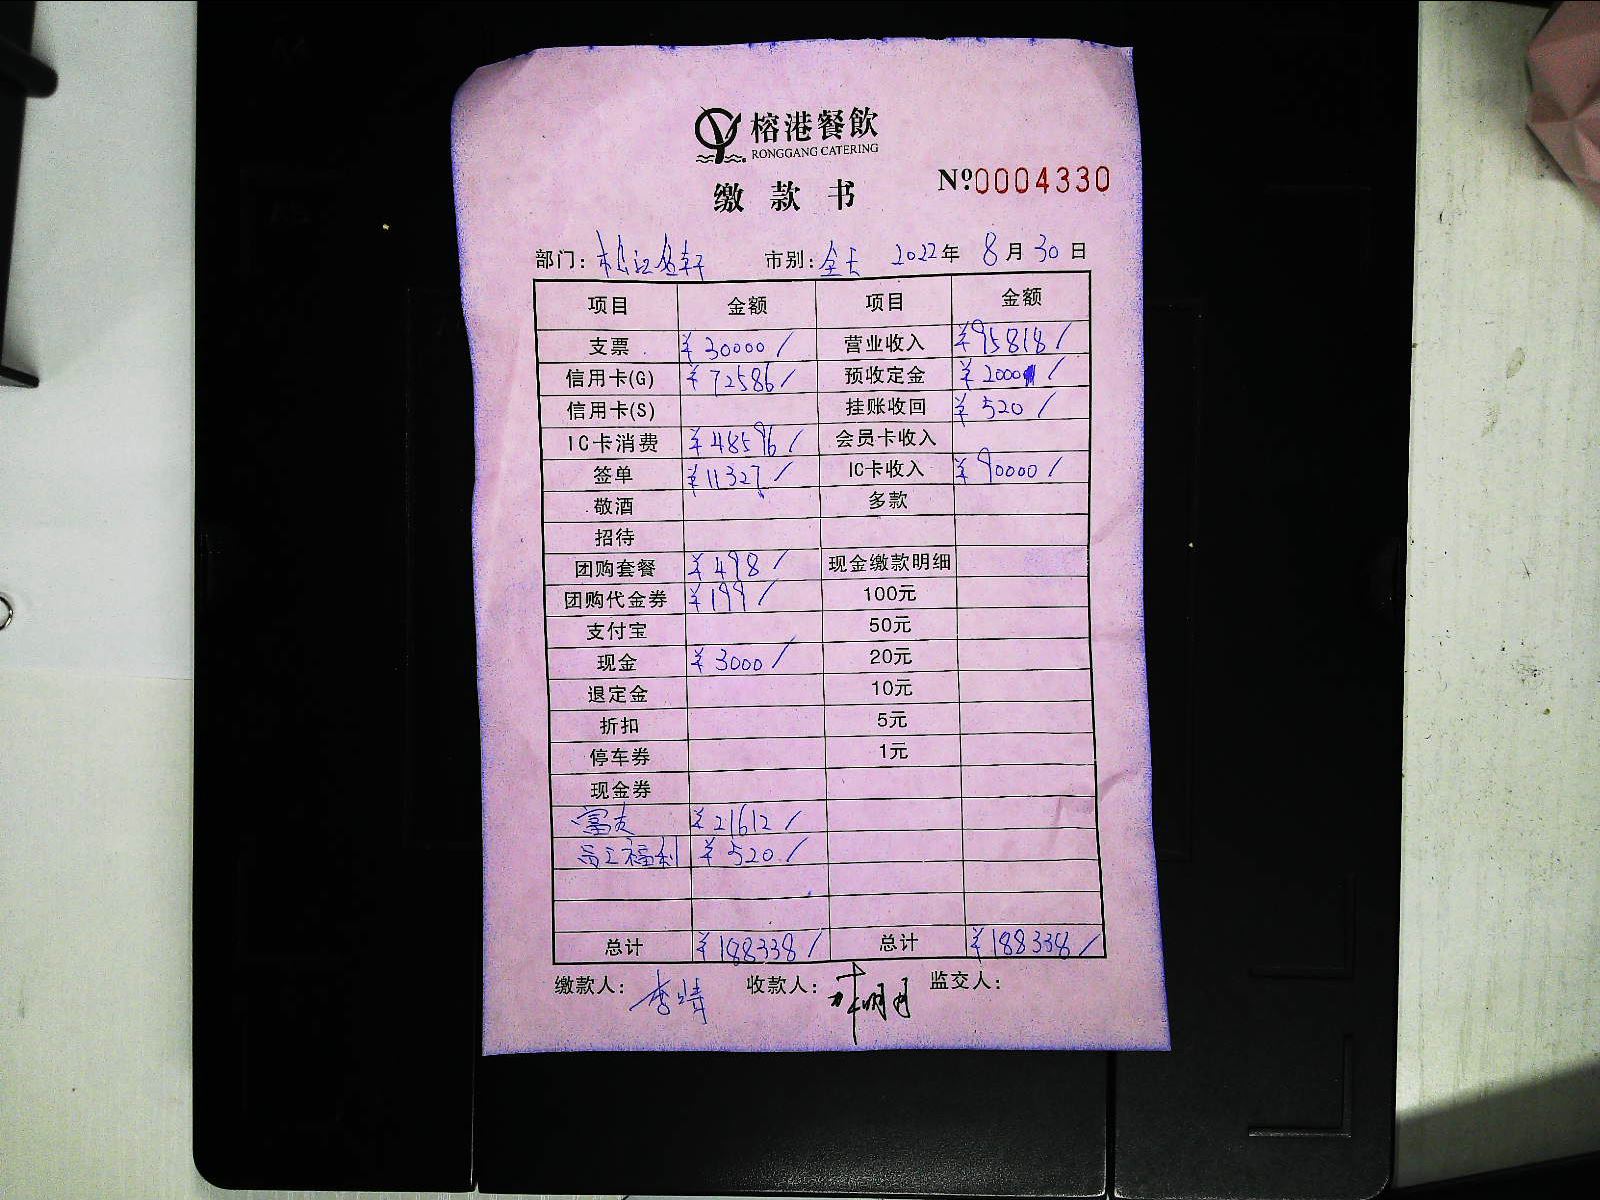 榕港餐飲
RONGGANG CATERING
缴款书
Nº0004330
部门: 松江 轩 市别: 全天 2022年 8月30日
项目 金额 项目 金额
支票 ¥30000/ 营业收入 ¥95818/
信用卡(G) ¥72586/ 预收定金 ¥2000/
信用卡(S) 挂账收回 ¥520/
IC卡消费 ¥48596/ 会员卡收入
签单 ¥11327/ IC卡收入 ¥90000/
敬酒 多款
招待
团购套餐 ¥498/ 现金缴款明细
团购代金券 ¥199/ 100元
支付宝 50元
现金 ¥3000/ 20元
退定金 10元
折扣 5元
停车券 1元
现金券
富友 ¥21612/
员工福利 ¥520/
总计 ¥188338/ 总计 ¥188338/
缴款人: 李 收款人: 明月 监交人: